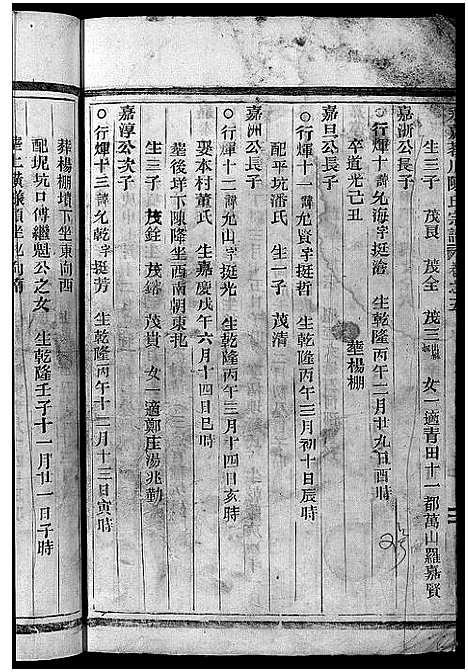 生三子 茂艮 茂全 茂三 女一適青田十一都萬山羅嘉賢
嘉浙公長子
○行煇十諱允海字挺滄 生乾隆丙午二月廿九日酉時
卒道光己丑 塟楊棚
嘉旦公長子
○行煇十一諱允賢字挺哲 生乾隆丙午三月初十日辰時
配平坑潘氏 生一子 茂清
嘉洲公長子
○行煇十二諱允山字挺光 生乾隆丙午三月十四日亥時
娶本村董氏 生嘉慶戊午六月十四日巳時
塟後垟下陳隆坐酉南朝東
生三子 茂銓 茂鎔 茂貴 女二適鄭庄湯兆勤
嘉淳公次子
○行煇十三諱允乾字挺芳 生乾隆丙午十二月十三日寅時
配坭坑口傅繼魁公之女 生乾隆壬子十一月廿一日子時
葬楊棚墳下坐東向西